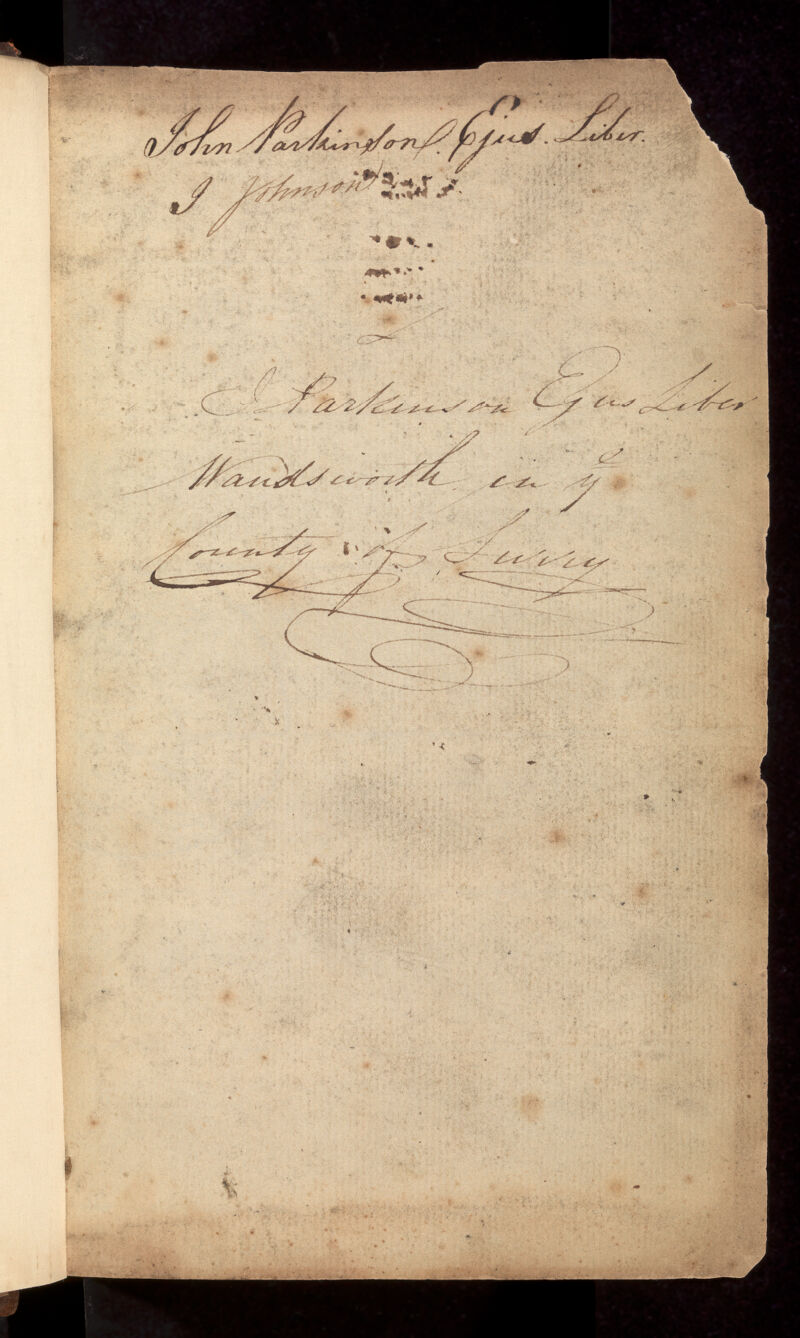 John Parkinson. Ejus. Liber.
J Johnson
J Parkinson Ejus Liber
Wandsworth in y
County of Surry